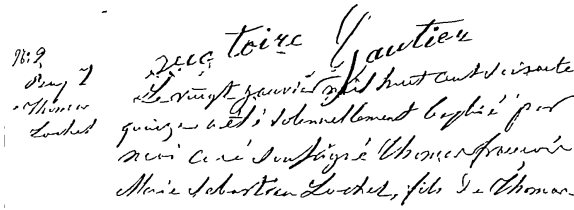 Nº 9
Thomas
Lochet
Gautier
Le vingt janvier mil huit cent soixante
quinze a été solennellement baptisé par
moi curé soussigné Thomas françois
Marie Sébastien Lochet, fils de Thomas